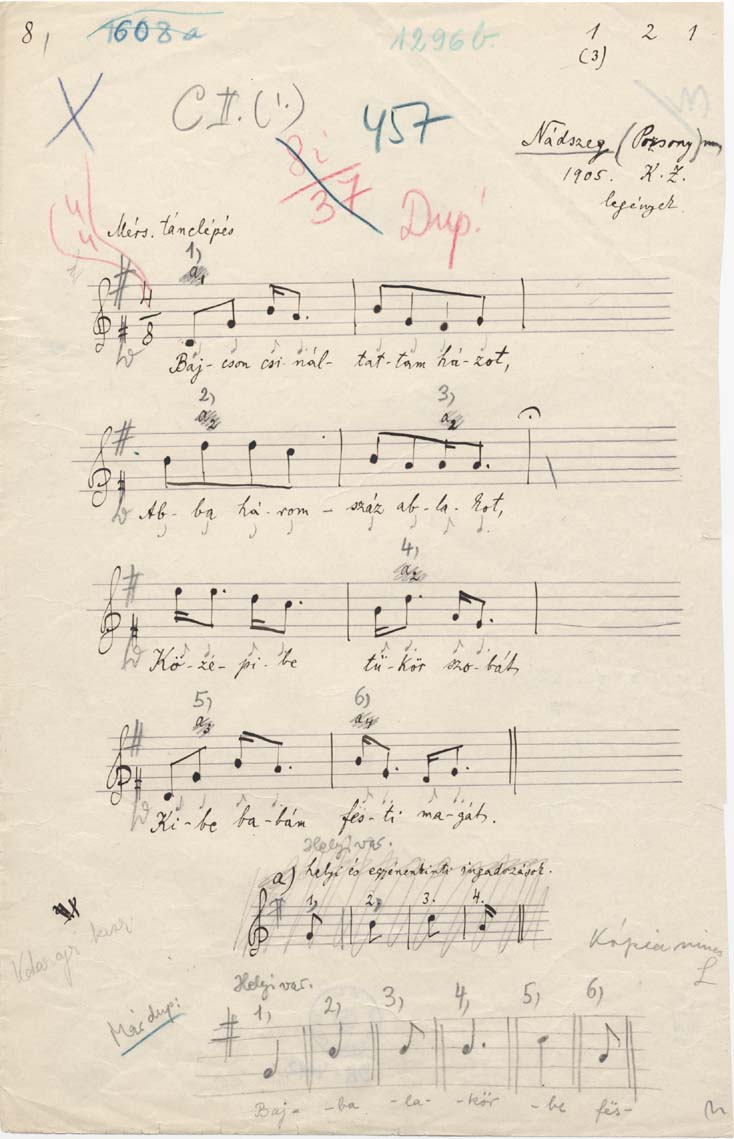 8, 1608a 1296b. 1 2 1
(3)
C II. (1.) 457
8i
37
Nádszeg (Pozsony) m
1905. K. Z.
legények
Dup!
Mérs. tánclépés
1)
a1
4
8
Baj-cson csi-nál-tat-tam há-zot,
2) 3)
a2 a2
Ab-ba há-rom-száz ab-la-kot,
4)
a2
Kö-zé-pi-be tü-kör szo-bát,
5) 6)
a3 a4
Ki-be ba-bám fës-ti ma-gát.
Helyi var.
a) helyi és egyénenkinti ingadozások.
1, 2, 3. 4.
Kópia nincs
Helyi var.
1, 2, 3, 4, 5, 6,
Már dup:
Baj- -ba -la- -kör -be fës-